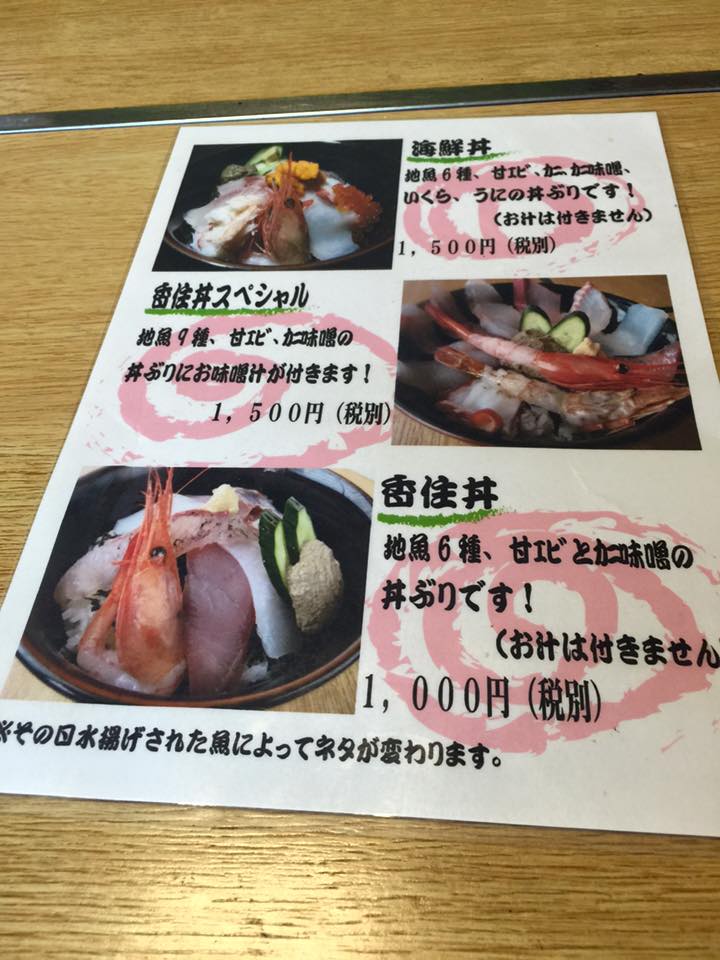 海鮮丼
地魚6種、甘エビ、カニ、カニ味噌、
いくら、うにの丼ぶりです!
(お汁は付きません)
1,500円(税別)
香住丼スペシャル
地魚9種、甘エビ、カニ味噌の
丼ぶりにお味噌汁が付きます!
1,500円(税別)
香住丼
地魚6種、甘エビとカニ味噌の
丼ぶりです!
(お汁は付きません
1,000円(税別)
※その日水揚げされた魚によってネタが変わります。